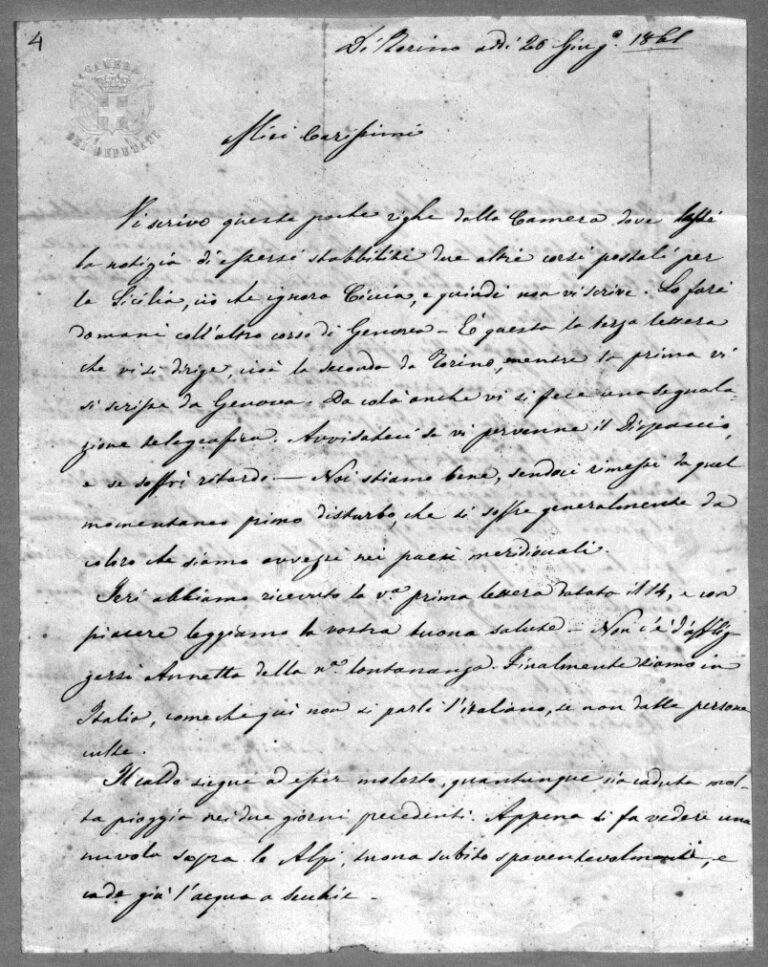 4
Di Torino addì 20 Giug.° 1861
CAMERA
DEI DEPUTATI
Miei Carissimi
Vi scrivo queste poche righe dalla Camera dove lessi
la notizia di essersi stabbiliti due altri corsi postali per
la Sicilia, ciò che ignora Ciccia, e quindi non vi scrive. Lo farà
domani coll'altro corso di Genova - È questa la terza lettera
che vi si dirige, cioè la seconda da Torino, mentre la prima vi
si scrisse da Genova. Da colà anche vi si fece una segnala-
zione telegrafica. Avvisateci se vi pervenne il Dispaccio,
e se soffrì ritardo. — Noi stiamo bene, sendoci rimessi da quel
momentaneo primo disturbo, che si soffre generalmente da
coloro che siamo avvezzi nei paesi meridionali.
Ieri abbiamo ricevuto la v.a prima lettera datata il 14, e con
piacere leggiamo la vostra buona salute - Non c'è d'afflig-
gersi Annetta della n.a lontananza. Finalmente siamo in
Italia, come che qui non si parli l'italiano, se non dalle persone
culte.
Il caldo siegue ad esser molesto, quantunque sia caduta mol-
ta pioggia nei due giorni precedenti. Appena si fa vedere una
nuvola sopra le Alpi, tuona subito spaventevolmente, e
cade giù l'acqua a secchie -